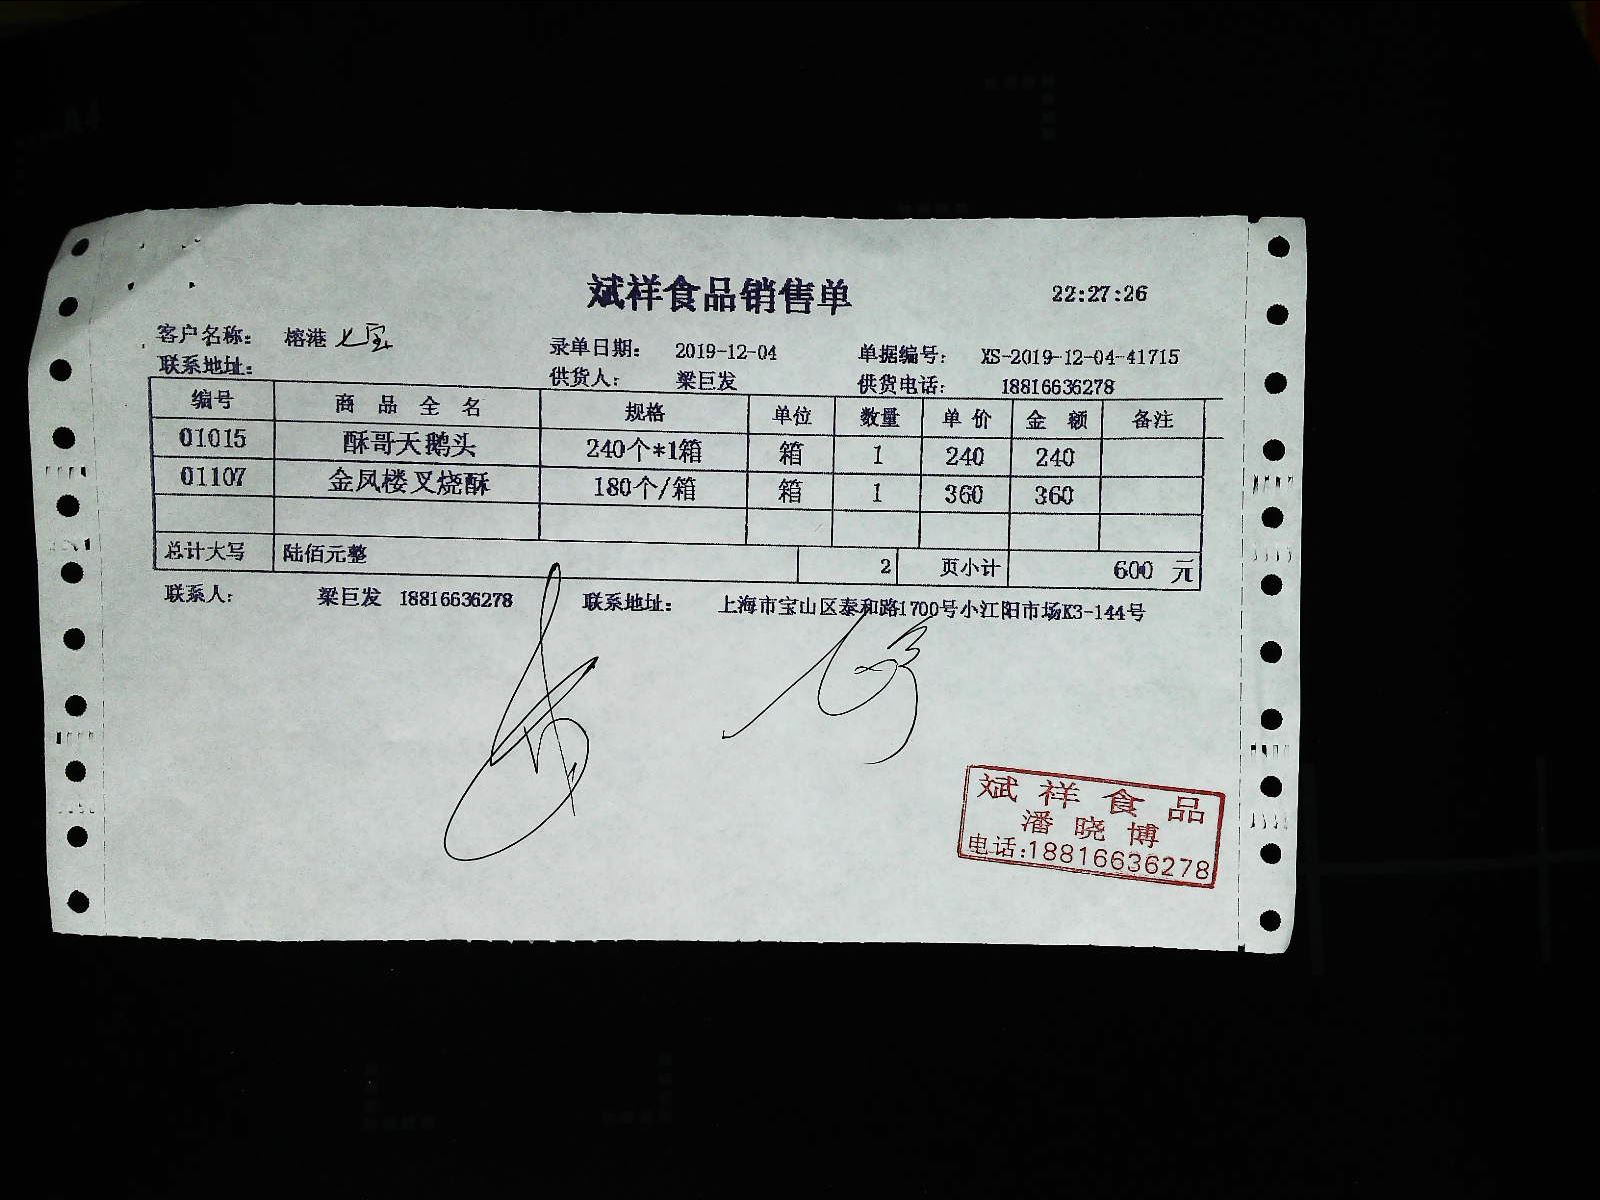 斌祥食品销售单 22:27:26
客户名称: 榕港 七宝 录单日期: 2019-12-04 单据编号: XS-2019-12-04-41715
联系地址: 供货人: 梁巨发 供货电话: 18816636278
编号 商品全名 规格 单位 数量 单价 金额 备注
01015 酥哥天鹅头 240个*1箱 箱 1 240 240
01107 金凤楼叉烧酥 180个/箱 箱 1 360 360
总计大写 陆佰元整 2 页小计 600 元
联系人: 梁巨发 18816636278 联系地址: 上海市宝山区泰和路1700号小江阳市场K3-144号
斌祥食品
潘晓博
电话:18816636278